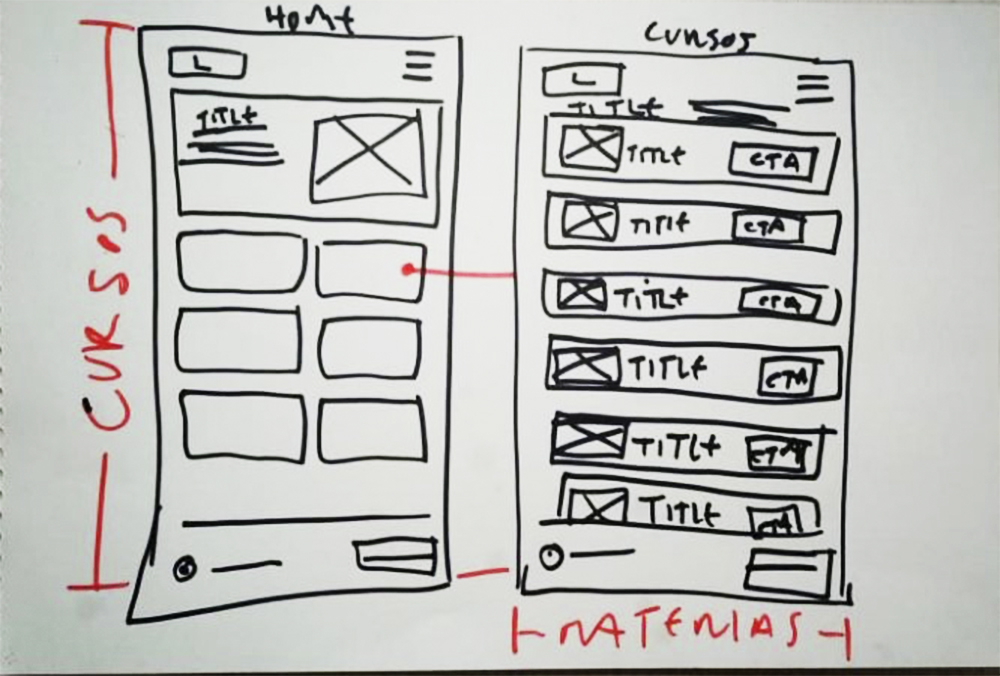 HOME
CURSOS
L
TITLE
CURSOS
L
TITLE
TITLE
CTA
TITLE
CTA
TITLE
CTA
TITLE
CTA
TITLE
CTA
TITLE
CTA
MATERIAS